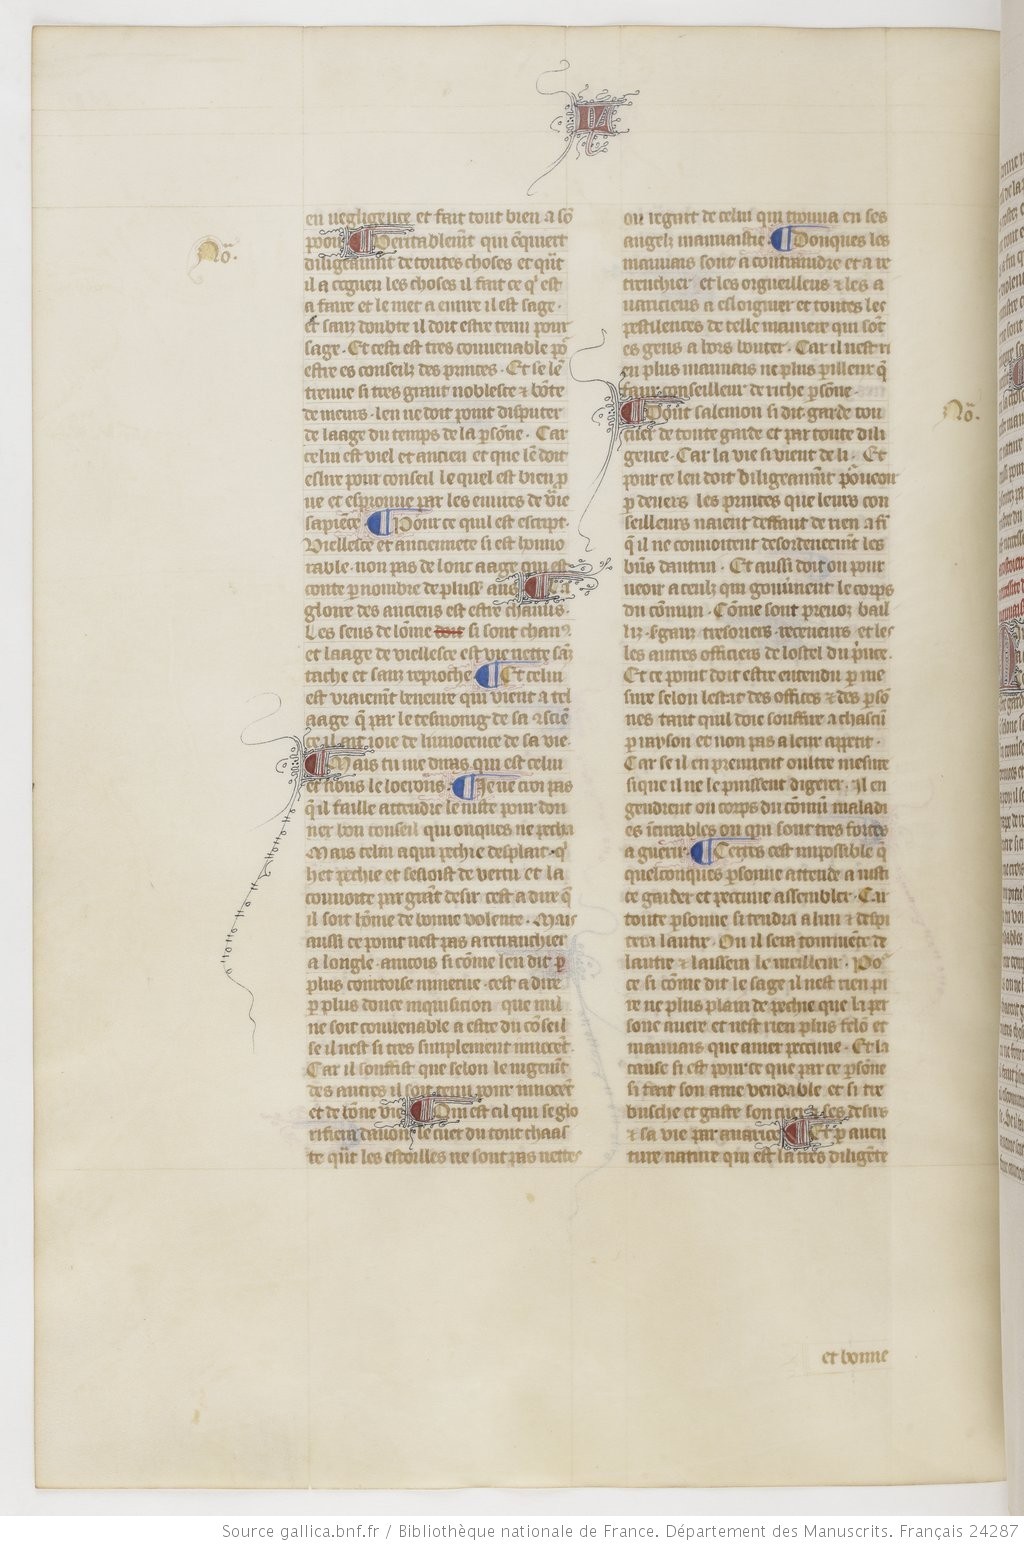 en negligence et fait tout bien a sō
pooir ¶ Veritablemt qui ēquiert
diligeaument de toutes choses et qūt
il a cogneu les choses il fait ce qͥ est
a faire et le met a euure il est sage ·
Et sanz doubte il doit estre tenu pour
sage · Et cesti est tres conuenable pō
estre es conseilz des princes · Et se lē
treuue si tres grant noblesce ⁊ bōte
de meurs · len ne doit point disputer
de laage du temps de la ꝑsōne · Car
celui est viel et ancien et que lē doit
eslire pour conseil le quel est bien ꝓ
ue et esprouue par les euures de vͥie
sapiēce ¶ Pour ce quil est escript ·
Viellesce et anciennete si est hono
rable · non pas de lonc aage qui est
conte ꝑ nombre de plus ans ¶ La
gloire des anciens est estre chanus ·
Les sens de lōme doit si sont chanꝰ
et laage de viellesce est vie nette sāz
tache et sanz reproche ¶ Et celui
est vraiemt beneure qui vient a tel
aage q̄ par le tesmoing de sa ꝯsciē
ce il ait ioie de linnocence de sa vie ·
¶ Mais tu me diras qui est celui
et nous le loerōns ¶ Je ne croi pas
q̄ il faille attendre le iuste pour don
ner bon conseil qui onques ne pecha
Mais celui a qui pechie desplait · qͥ
het pechie et sesioist de vertu et la
couuoite par grāt desir · cest a dire q̄
il soit hōme de bonne volente · Mais
aussi ce point nest pas a retranchier
a longle · aincois si cōme len dit ꝑ
plus courtoise minerue · cest a dire
ꝑ plus douce inquisicion · que nul
ne soit conuenable a estre du cōseil
se il nest si tres simplement innocēt ·
Car il souffist que selon le iugemt
des autres il soit tenu pour innocent
et de bōne vie ¶ Qui est cil qui se glo
rifiera dauoir le cuer du tout chaas
te qūt les estoilles ne sont pas nettes
ou regart de celui qui trouua en ses
angelz mauuaistie ¶ Donques les
mauuais sont a contraindre et a re
trenchier · et les orgueilleus ⁊ les a
uaricieus a esloignier et toutes les
pestilences de telle maniere qui sōt
es gens a hors bouter · Car il nest ri
en plus mauuais ne plus perilleur q̄
faux conseilleur de riche ꝑsōne ·
¶ Dont salemon si dit · garde ton
cuer de toute garde et par toute dili
gence · Car la vie si vient de li · Et
pour ce len doit diligeaument pōueoir
ꝑ deuers les princes que leurs con
seilleurs naient deffaut de rien a fī
q̄ il ne conuoitent desordeneemt les
biēs dautrui · Et aussi doit on pour
ueoir a ceulz qui gouūnent le corps
du cōmun · Cōme sont preuoz bail
liz · ⁊ gaux tresoriers · receueurs et les
les autres officiers de lostel du pͥnce ·
Et ce point doit estre entendu ꝑ me
sure selon lestat des offices ⁊ des ꝑsō
nes tant quil doie souffire a chascū
ꝑ rayson et non pas a leur appetit ·
Car se il en prennent oultre mesure
si que il ne le puissent digerer · Il en
gendrent ou corps du cōmū maladi
es īcurables ou qui sont tres fortes
a guerir ¶ Certes cest impossible q̄
quelconques ꝑsonne attende a iusti
ce garder et pecune assembler · Car
toute ꝑsonne si tendra a lun ⁊ despi
tera lautre · Ou il sera tourmēte de
lautre ⁊ laissera le meilleur · Po
ce si cōme dit le sage il nest rien pi
re ne plus plain de pechie que la per
sone auere et nest rien plus felō et
mauuais que amer peccune · Et la
cause si est pour ce que par ce ꝑsōne
si fait son ame vendable et si tre
busche et gaste son cuer ⁊ ses desirs
⁊ sa vie par auarice ¶ Et ꝑ auen
ture nature qui est la tres diligēte
et bonne
Source gallica.bnf.fr / Bibliothèque nationale de France. Département des Manuscrits. Français 24287